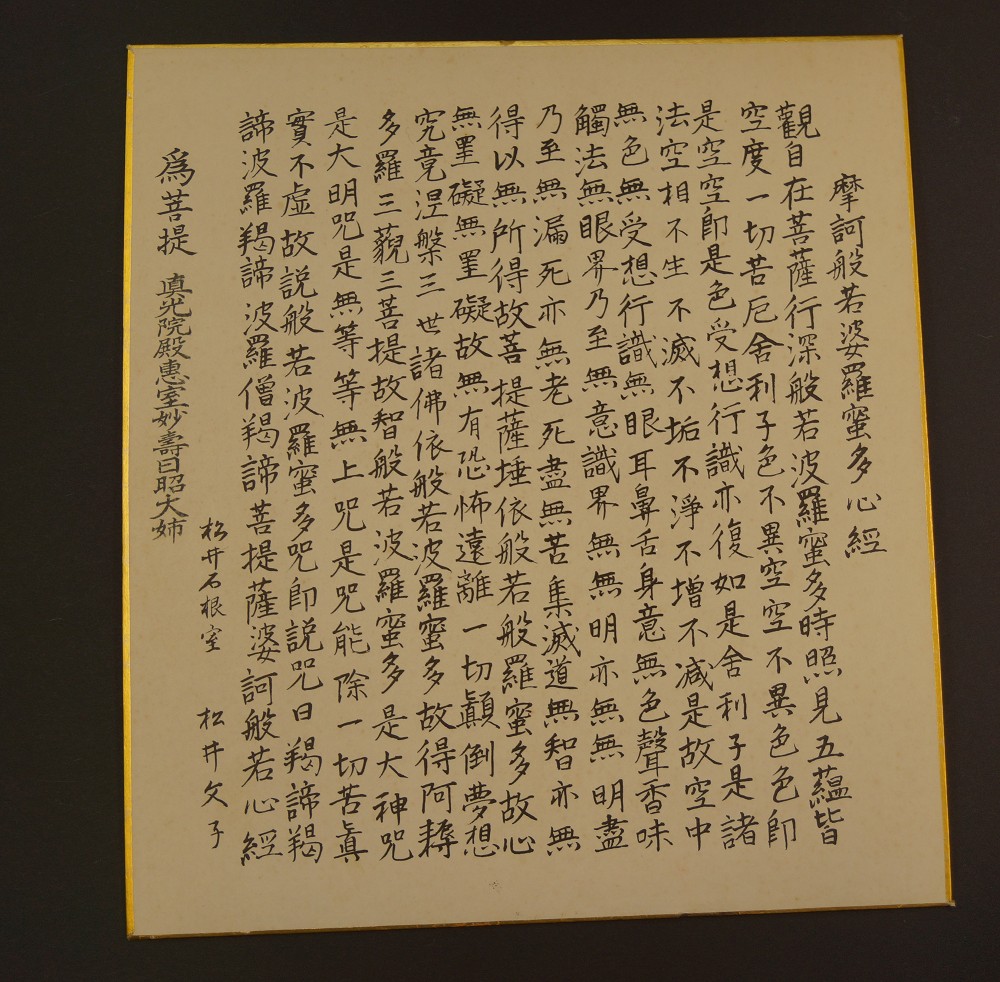 摩訶般若婆羅蜜多心經
觀自在菩薩行深般若波羅蜜多時照見五蘊皆
空度一切苦厄舍利子色不異空空不異色色即
是空空即是色受想行識亦復如是舍利子是諸
法空相不生不滅不垢不淨不增不減是故空中
無色無受想行識無眼耳鼻舌身意無色聲香味
觸法無眼界乃至無意識界無無明亦無無明盡
乃至無漏死亦無老死盡無苦集滅道無智亦無
得以無所得故菩提薩埵依般若般羅蜜多故心
無罣礙無罣礙故無有恐怖遠離一切顛倒夢想
究竟涅槃三世諸佛依般若波羅蜜多故得阿耨
多羅三藐三菩提故智般若波羅蜜多是大神咒
是大明咒是無等等無上咒是咒能除一切苦眞
實不虛故説般若波羅蜜多咒即説咒曰羯諦羯
諦波羅羯諦波羅僧羯諦菩提薩婆訶般若心經
松井石根室 松井文子
爲菩提 真光院殿惠室妙壽日昭大姉